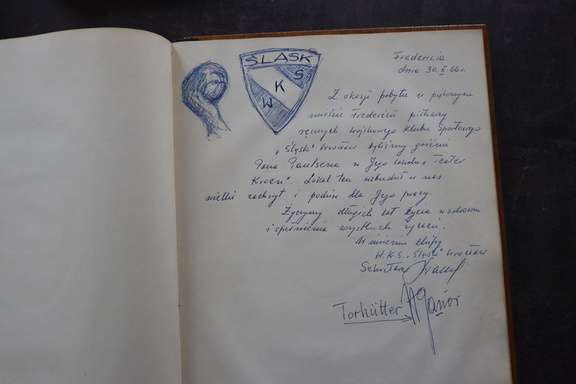 ŚLĄSK
WKS
Fredericia
dnia 30.X.66r.
Z okazji pobytu w pięknym
mieście Fredericii piłkarzy
ręcznych wojskowego klubu sportowego
„Śląsk" Wrocław byliśmy gośćmi
Pana Paulsena w Jego lokalu „Teater
Kroen". Lokal ten wzbudził w nas
wielki zachwyt i podziw dla Jego pracy.
Życzymy długich lat życia w zdrowiu
i spełnienia wszystkich życzeń.
W imieniu ekipy
W.K.S. „Śląsk" Wrocław
Sekretarz
Torhütter